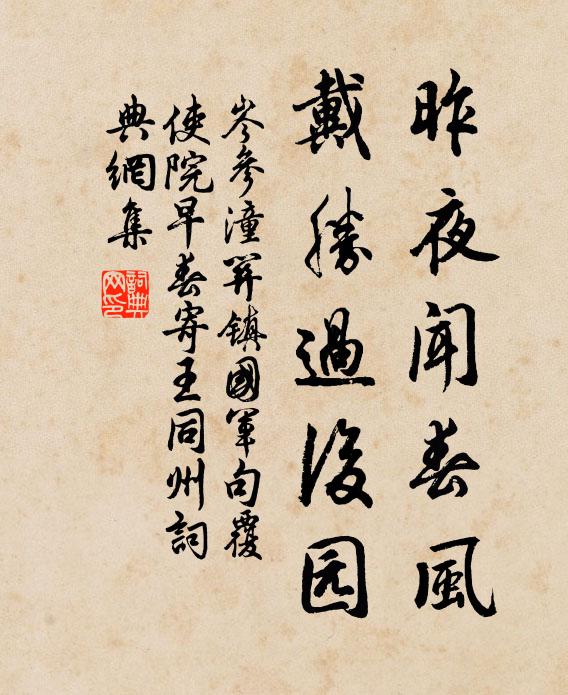 昨夜聞春風
戴勝過後园
岑參潼關鎮國軍句覆
使院早春寄王同州詞
典網集
詞典网印